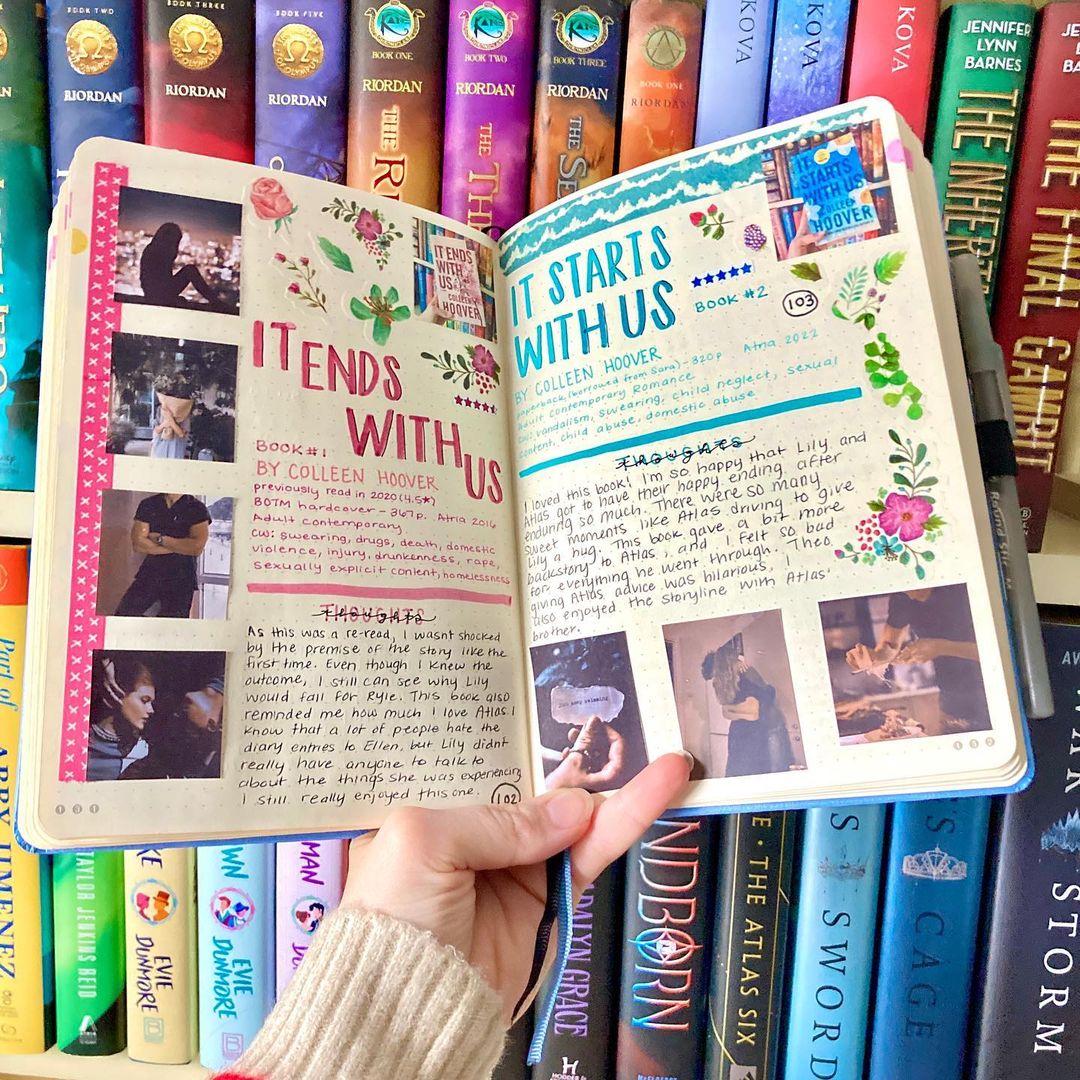 BOOK TWO
RIORDAN
BOOK THREE
RIORDAN
BOOK FIVE
RIORDAN
KANE
BOOK ONE
RIORDAN
THE
KANE
BOOK TWO
RIORDAN
THE
KANE
BOOK THREE
RIORDAN
THE
BOOK ONE
RIORDAN
KOVA
KOVA
KOVA
JENNIFER
LYNN
BARNES
THE INHERIT
JENNIFER
LYNN
BARNES
THE FINAL GAMBIT
IT ENDS
WITH
US
COLLEEN
HOOVER
IT ENDS
WITH
US
BOOK #1
BY COLLEEN HOOVER
previously read in 2020 (4.5★)
BOTM hardcover - 367p. Atria 2016
Adult contemporary
CW: swearing, drugs, death, domestic
violence, injury, drunkenness, rape,
sexually explicit content, homelessness
THOUGHTS
As this was a re-read, I wasnt shocked
by the premise of the story like the
first time. Even though I knew the
outcome, I still can see why Lily
would fall for Ryle. This book also
reminded me how much I love Atlas. I
know that a lot of people hate the
diary entries to Ellen, but Lily didn't
really have anyone to talk to
about the things she was experiencing
I still really enjoyed this one.
102
131
IT
STARTS
WITH US
COLLEEN
HOOVER
IT STARTS
WITH US
BOOK #2
103
BY COLLEEN HOOVER
paperback (borrowed from Sara) - 320p Atria 2022
Adult Contemporary Romance
CW: vandalism, swearing, child neglect, sexual
content, child abuse, domestic abuse
THOUGHTS
I loved this book! I'm so happy that Lily and
Atlas got to have their happy ending after
enduring so much. There were so many
sweet moments like Atlas driving to give
Lily a hug. This book gave a bit more
backstory to Atlas, and I felt so bad
for everything he went through. Theo
giving Atlas advice was hilarious. I
also enjoyed the storyline with Atlas'
brother.
just keep swimming
132
Part of
ABBY JIMENEZ
TAYLOR JENKINS REID
EVIE
DUNMORE
EVIE
DUNMORE
MAN
ADALYN GRACE
NDBORN
THE ATLAS SIX
SWORD
CAGE
STORM